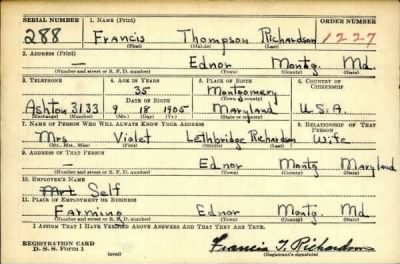 SERIAL NUMBER 1. NAME (Print) ORDER NUMBER
288 Francis Thompson Richardson 1227
(First) (Middle) (Last)
2. ADDRESS (Print)
— Ednor Montg. Md.
(Number and street or R. F. D. number) (Town) (County) (State)
3. TELEPHONE 4. AGE IN YEARS 5. PLACE OF BIRTH 6. COUNTRY OF CITIZENSHIP
35 Montgomery
DATE OF BIRTH (Town or county)
Ashton 3133 9 18 1905 Maryland U.S.A.
(Exchange) (No.) (Mo.) (Day) (Yr.) (State or country)
7. NAME OF PERSON WHO WILL ALWAYS KNOW YOUR ADDRESS 8. RELATIONSHIP OF THAT PERSON
Mrs Violet Lethbridge Richardson Wife
(Mr., Mrs., Miss) (First) (Middle) (Last)
9. ADDRESS OF THAT PERSON
— Ednor Montg Maryland
(Number and street or R. F. D. number) (Town) (County) (State)
10. EMPLOYER'S NAME
Self
11. PLACE OF EMPLOYMENT OR BUSINESS
Farming Ednor Montg. Md
(Number and street or R. F. D. number) (Town) (County) (State)
I AFFIRM THAT I HAVE VERIFIED ABOVE ANSWERS AND THAT THEY ARE TRUE.
REGISTRATION CARD
D. S. S. Form 1 (over) Francis T. Richardson
(Registrant's signature)